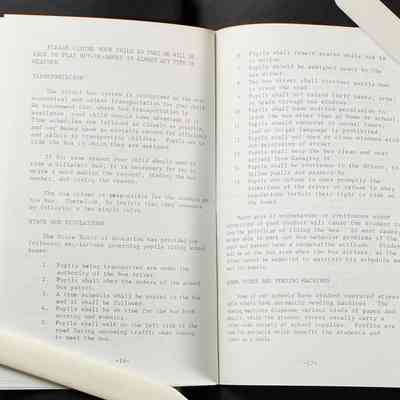 PLEASE CLOTHE YOUR CHILD SO THAT HE WILL BE
ABLE TO PLAY OUT-OF-DOORS IN ALMOST ANY TYPE OF
WEATHER.
TRANSPORTATION
The school bus system is
economical and safest transportation for your child.
We recommend that where bus transportation is
available, your child should take advantage of it.
Time schedules are followed as closely as possible,
and our buses make as many stops
and safety in transporting children. Pupils are to
ride the bus to which they are assigned.
If for some reason your child should need to
ride a different bus, it is necessary for you to
write a note making the request, stating the bus
number, and giving the reason.
The bus driver is responsible for the conduct on
his bus. Therefore, he insists that they
by following a few simple rules.
STATE AND REGULATIONS
The State Board of Education has provided the
following regulations governing pupils riding school
buses:
1. Pupils being transported are under the
authority of the bus driver.
2. Pupils shall obey the orders of the school
bus patrol.
3. A time schedule shall be posted in the bus
and it shall be followed.
4. Pupils shall be on time for the bus both
morning and evening.
5. Pupils shall walk on the left side of the
road facing oncoming traffic when
to meet the bus.
-16-
6. Pupils shall remain seated while bus is
in motion.
Pupils should be assigned seats by the
bus driver.
The bus driver shall instruct pupils how
to cross the road.
Pupils shall not extend their hands, arms,
or heads through bus windows.
Pupils shall have written permission to
leave the bus other than at home or school.
Pupils should converse in normal tones;
loud or vulgar language is prohibited.
Pupils shall not open or close windows with-
out permission of driver.
Pupils shall keep the bus clean and must
refrain from damaging it.
Pupils shall be courteous to the driver, to
fellow pupils and passers-by.
Pupils who refuse to obey promptly the
directions of the driver or refuse to obey
regulations forfeit their right to ride on
the buses.
Major acts of misbehavior or continuous minor
of good conduct will cause the student to
lose the privilege of riding the bus. In most cases,
able to work out bus behavior problems if the
pupil and parent have a cooperative attitude. Students
at the bus stop when the bus arrives, as the
driver cannot be expected to maintain his schedule and
wait on pupils.
BOOK STORE AND VENDING MACHINES
Some of our schools have student operated stores
while others have automatic vending machines. The
vending machines dispense various kinds of paper and
pencils, while the student stores usually carry a
wide variety of school supplies. Profits are
used in projects which benefit the students and
school as a whole.
-17-